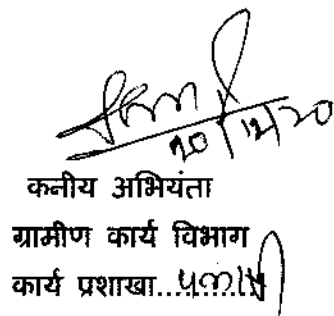 20/12/20
कनीय अभियंता
ग्रामीण कार्य विभाग
कार्य प्रशाखा.....